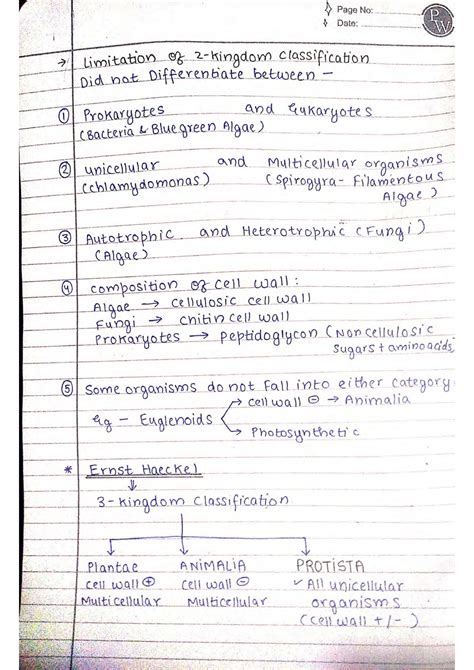 Page No:
Date:
PW
→ Limitation of 2-kingdom classification
Did not Differentiate between –
① Prokaryotes and Eukaryotes
(Bacteria & Blue green Algae)
② unicellular and Multicellular organisms
(chlamydomonas) (Spirogyra- Filamentous
Algae)
③ Autotrophic and Heterotrophic (Fungi)
(Algae)
④ composition of cell wall :
Algae → cellulosic cell wall
Fungi → chitin cell wall
Prokaryotes → peptidoglycon (Non cellulosic
sugars + amino acids)
⑤ Some organisms do not fall into either category
Eg – Euglenoids → cell wall ⊖ → Animalia
→ Photosynthetic
* Ernst Haeckel
⇓
3-kingdom classification
Plantae ANIMALIA PROTISTA
cell wall ⊕ cell wall ⊖ ✓ All unicellular
Multicellular Multicellular organisms
(cell wall +/-)